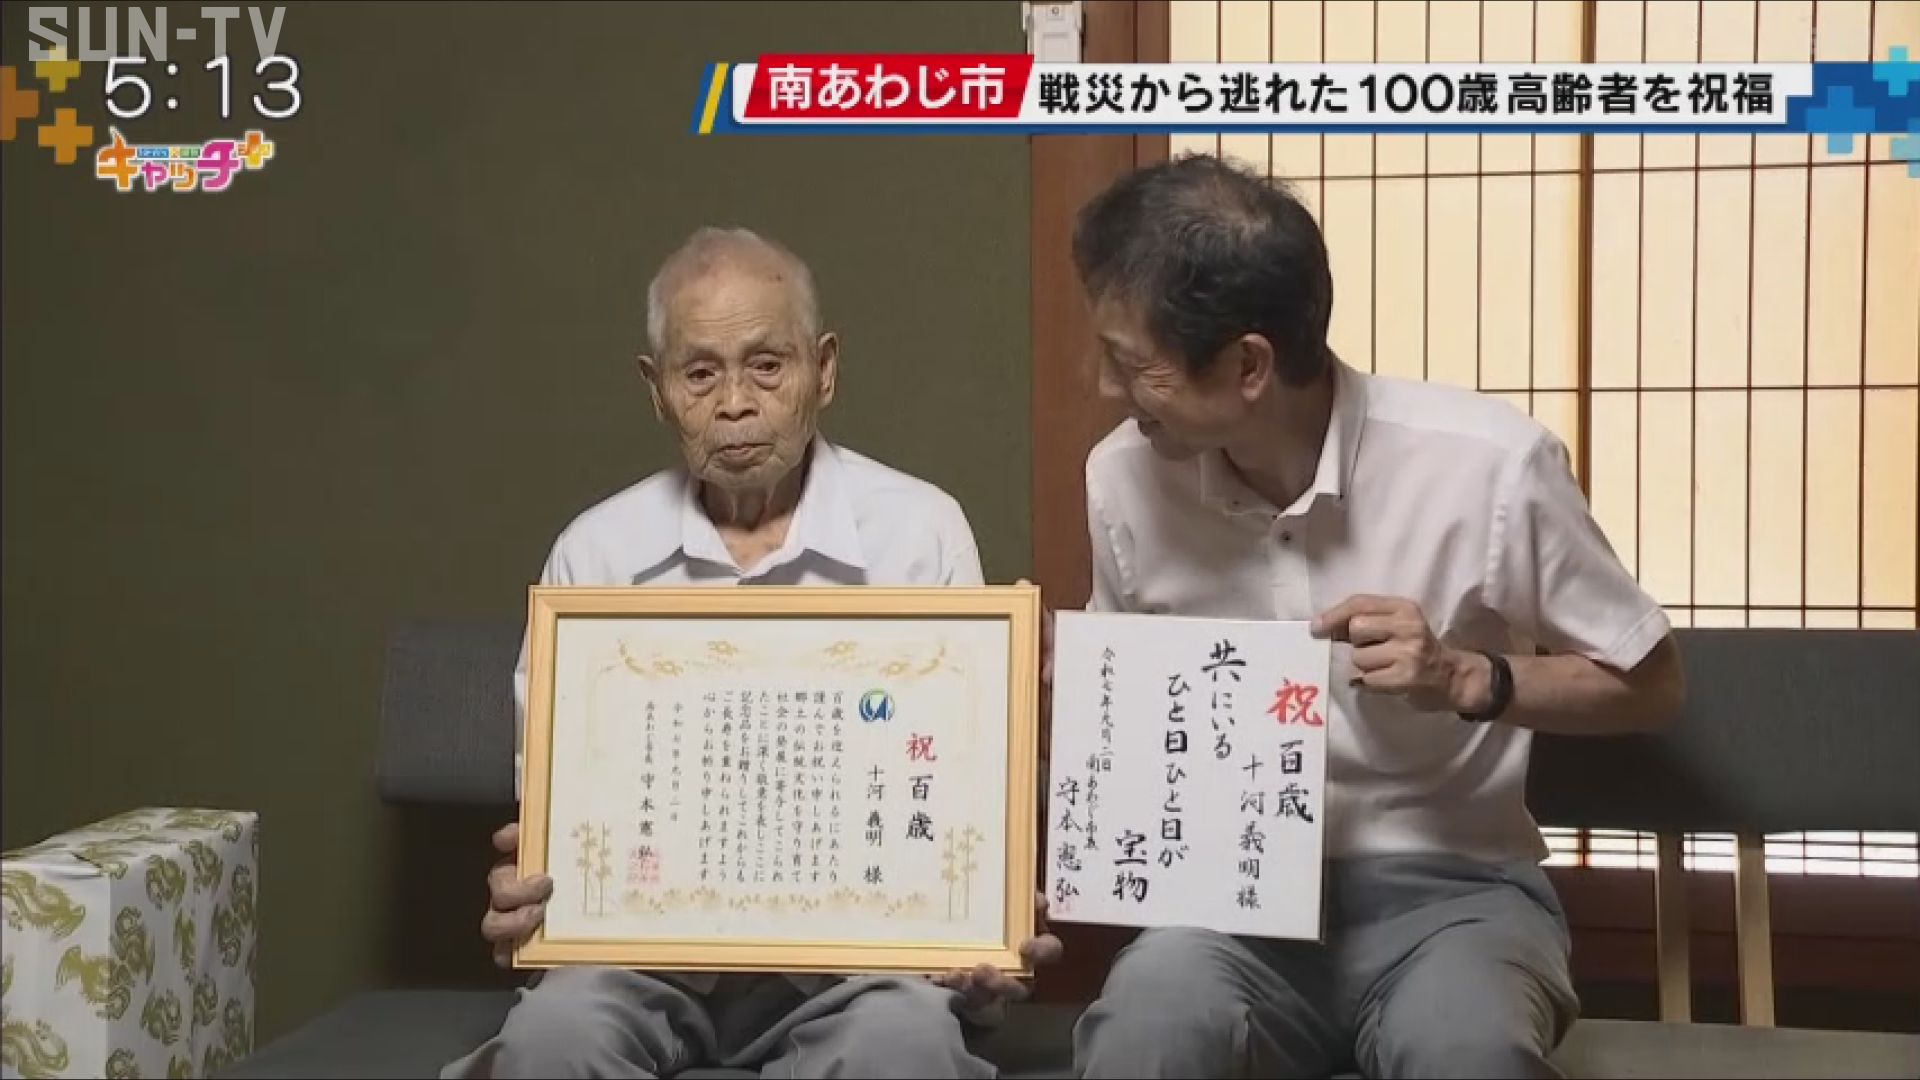 SUN-TV
5:13
キャッチ+
南あわじ市 戦災から逃れた100歳高齢者を祝福
祝 百歳
十河 義明 様
百歳を迎えられるにあたり
謹んでお祝い申しあげます
郷土の伝統文化を守り育て
社会の発展に寄与してこられ
たことに深く敬意を表しここに
記念品をお贈りしてこれからも
ご長寿を重ねられますよう
心からお祈り申しあげます
令和七年九月二日
南あわじ市長 守本憲弘
祝 百歳
十河義明様
共にいる
ひと日ひと日が
宝物
令和七年九月二日
南あわじ市長
守本憲弘